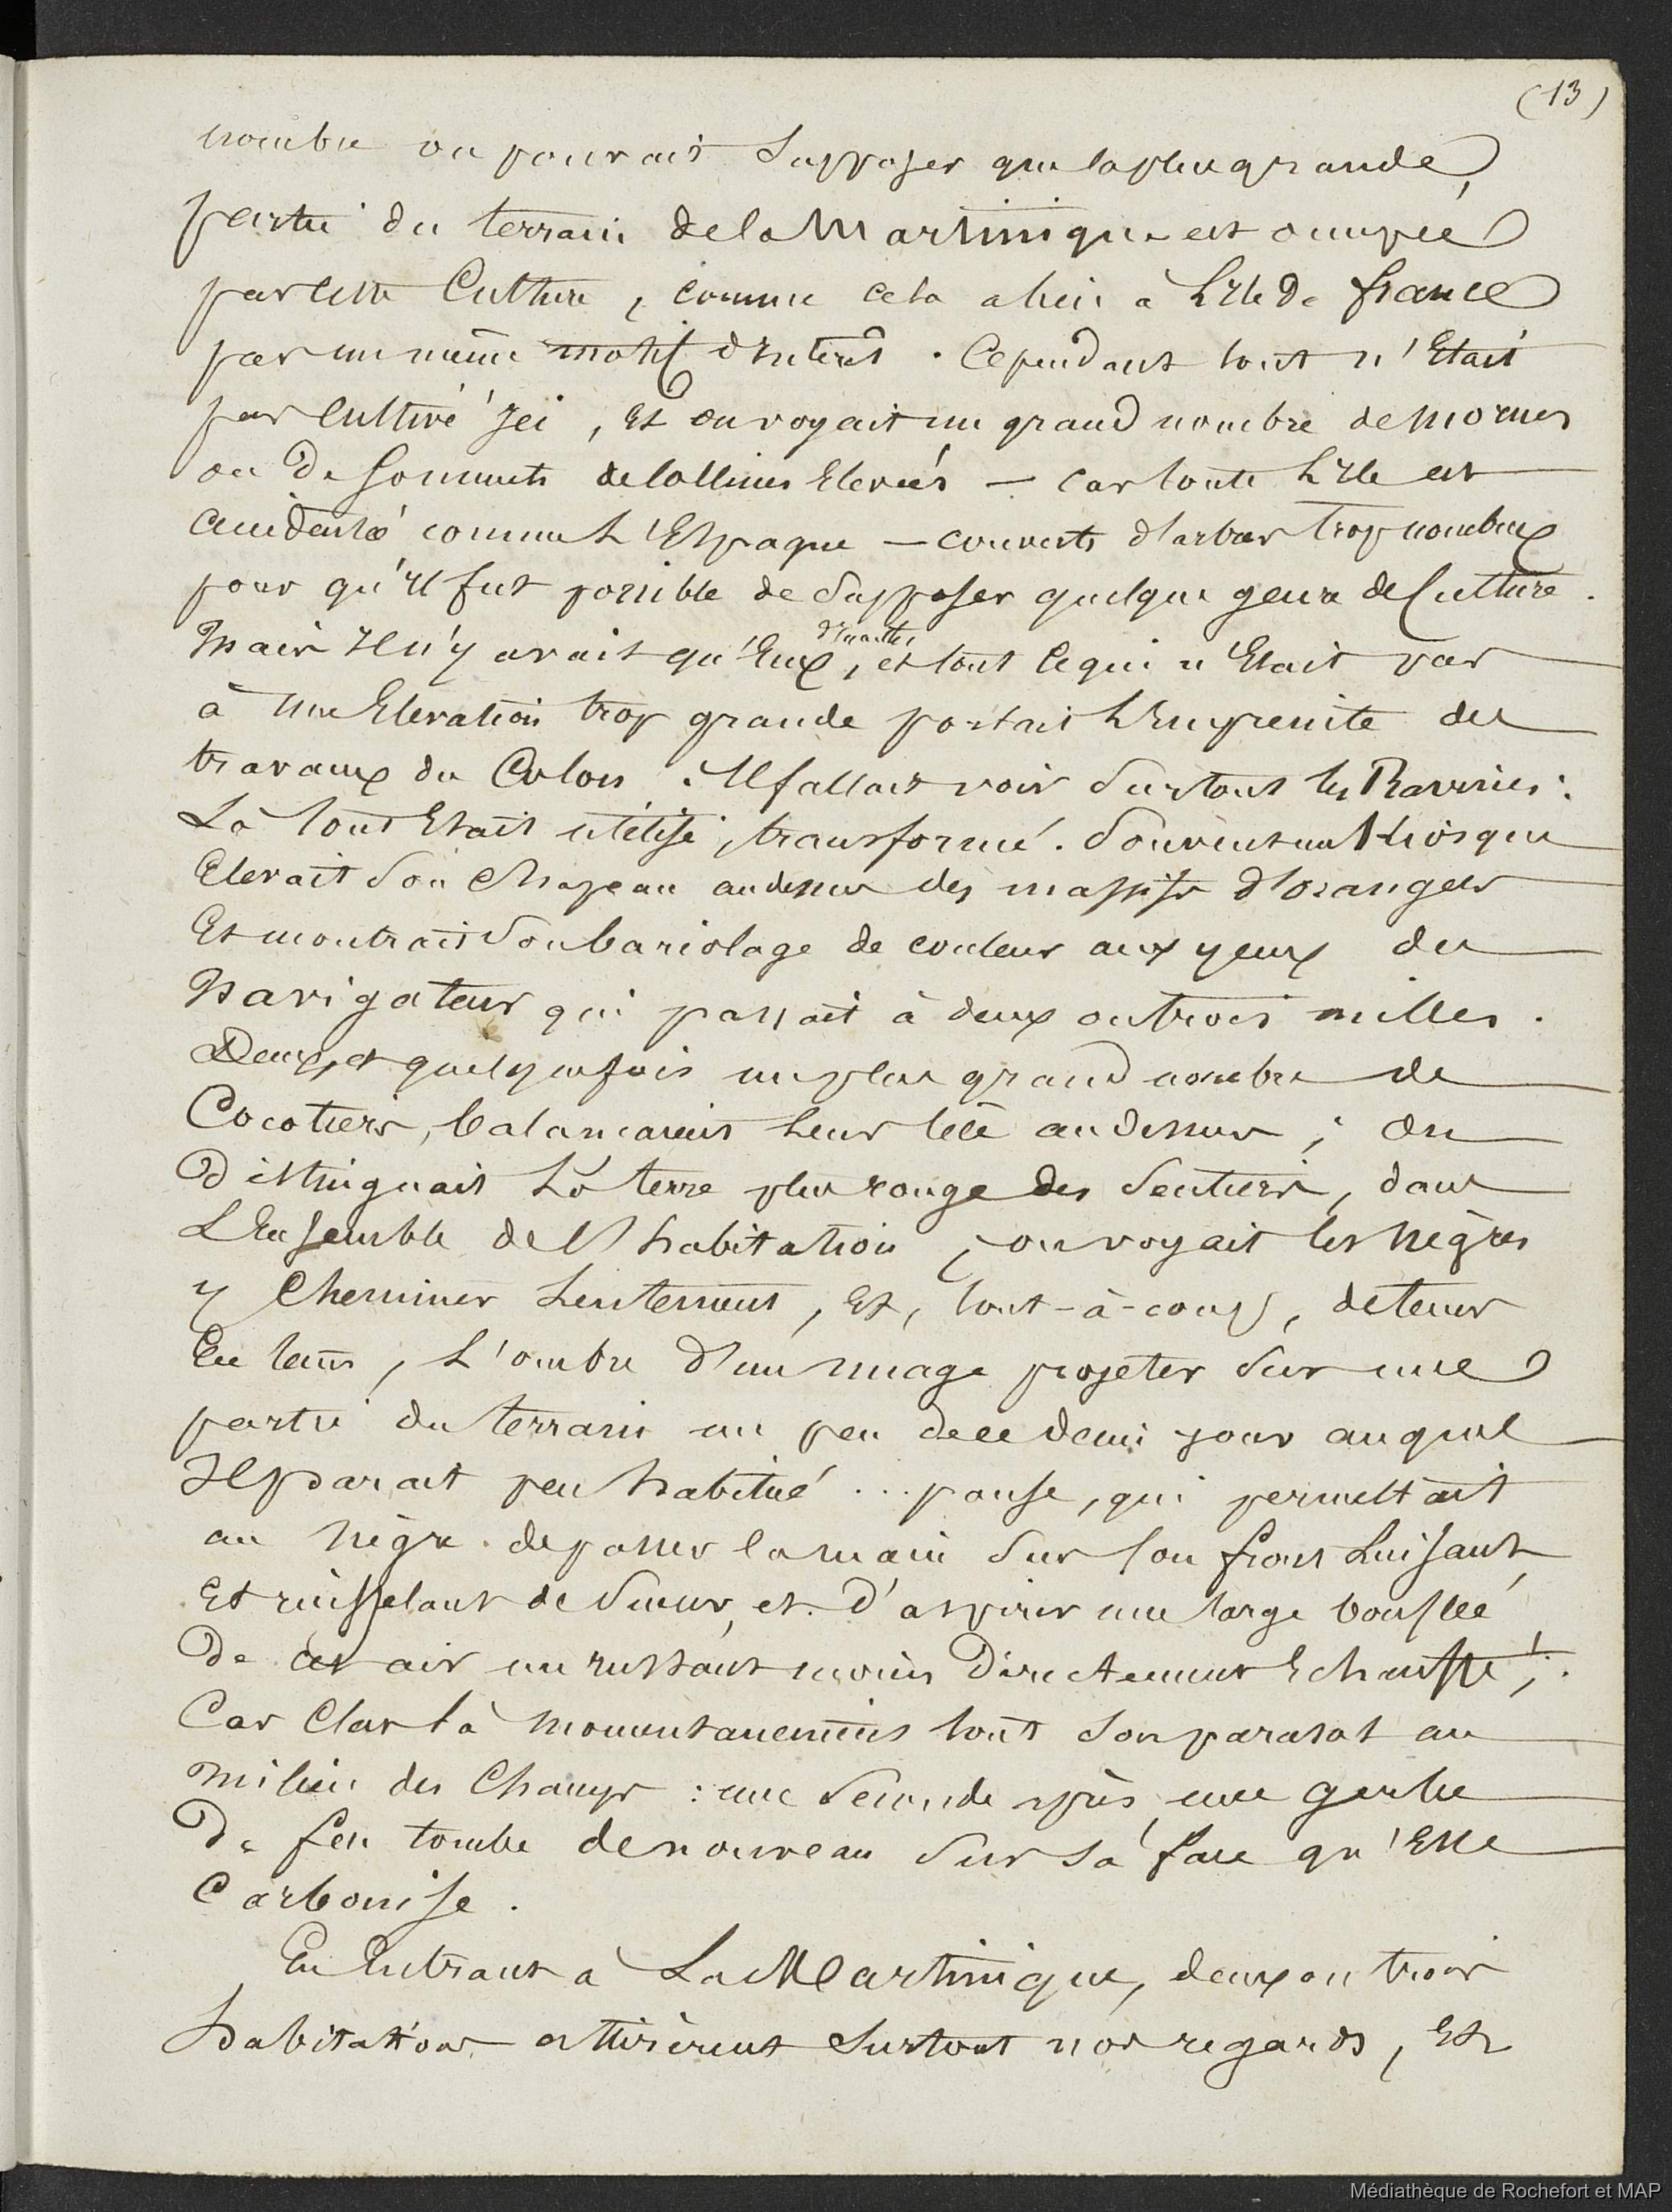 (13)
nombre on pourrait supposer que la plus grande
partie du terrain de la Martinique est occupée
par cette Culture, comme cela a lieu à L'Ile de france
par un même motif d'Intérêt. Cependant tout n'Etait
pas Cultivé Ici, Et on voyait un grand nombre de mornes
ou De Sommets de Collines Elevées — car toute L'Ile est
accidentée comme L'Espagne — couverts d'arbres trop nombreux
pour qu'Il fut possible de Supposer quelque genre de Culture.
Mais Il n'y avait qu'Eux d'Inactes, et tout ce qui n'Etait pas
à Une Elevation trop grande portait L'Empreinte des
travaux du Colon. Il fallait voir Surtout les Ravines :
Là tout Etait utilisé, transformé. Souvent un Kiosque
Elevait Son Chapeau au dessus des massifs d'orangers
Et montrait Son bariolage de couleur aux yeux du
Navigateur qui passait à deux ou trois milles.
Deux, et quelquefois un plus grand nombre de
Cocotiers, balançaient Leur tête au Dessus ; On
Distinguait La terre plus rouge des Sentiers, dans
L'Ensemble de L'habitation ; on voyait les Nègres
y Cheminer Lentement, Et, tout-à-coup, de tems
En tems, L'ombre d'un nuage projeter Sur une
partie du terrain un peu de ce demi jour auquel
Il parait peu habitué ... pause, qui permettait
au Nègre de passer la main Sur Son front Luisant
Et ruisselant de Sueur, et d'aspirer une large bouffée
De cet air un Instant moins Directement Echauffé ;
Car C'est là momentanement tout Son parasol au
milieu des Champs : une Seconde après une gerbe
De feu tombe de nouveau Sur Sa face qu'Elle
Carbonise.
En Entrant à La Martinique, deux ou trois
habitations attirèrent Surtout nos regards, Et
Médiathèque de Rochefort et MAP